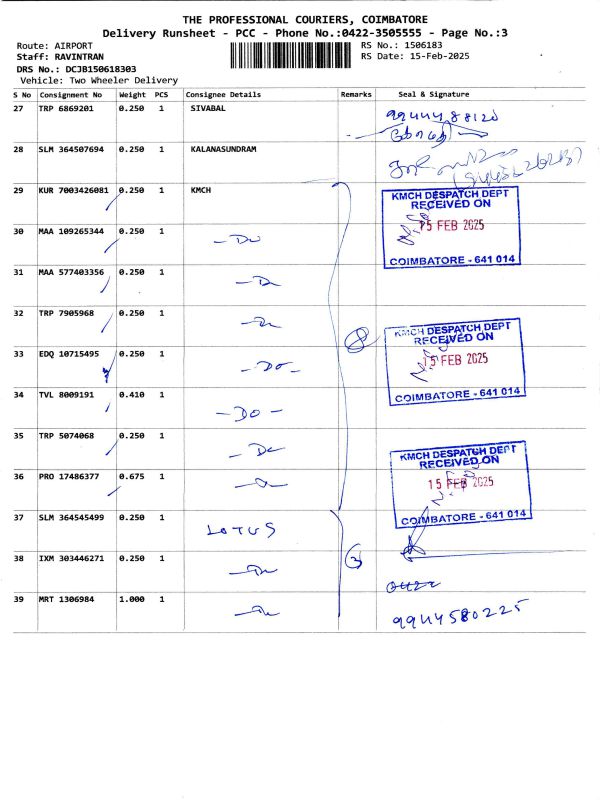 THE PROFESSIONAL COURIERS, COIMBATORE
Delivery Runsheet - PCC - Phone No.:0422-3505555 - Page No.:3
Route: AIRPORT RS No.: 1506183
Staff: RAVINTRAN RS Date: 15-Feb-2025
DRS No.: DCJB150618303
Vehicle: Two Wheeler Delivery
S No Consignment No Weight PCS Consignee Details Remarks Seal & Signature
27 TRP 6869201 0.250 1 SIVABAL
28 SLM 364507694 0.250 1 KALANASUNDRAM
29 KUR 7003426081 0.250 1 KMCH
KMCH DESPATCH DEPT
RECEIVED ON
15 FEB 2025
COIMBATORE - 641 014
30 MAA 109265344 0.250 1 - Do
31 MAA 577403356 0.250 1
32 TRP 7905968 0.250 1
8
KMCH DESPATCH DEPT
RECEIVED ON
15 FEB 2025
COIMBATORE - 641 014
33 EDQ 10715495 0.250 1 - Do -
34 TVL 8009191 0.410 1 - Do -
35 TRP 5074068 0.250 1 - Do
KMCH DESPATCH DEPT
RECEIVED ON
15 FEB 2025
COIMBATORE - 641 014
36 PRO 17486377 0.675 1
37 SLM 364545499 0.250 1 LOTUS
38 IXM 303446271 0.250 1 3
39 MRT 1306984 1.000 1 9944580225